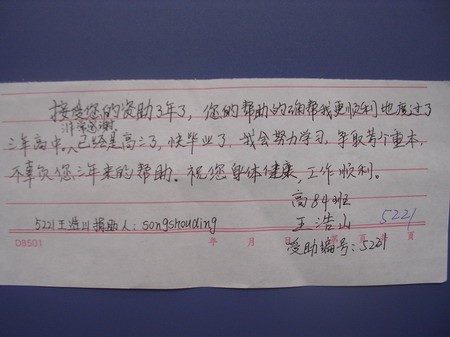 接受您的资助3年了，您的帮助的确帮我更顺利地度过了
非常感谢
三年高中。已经是高三了，快毕业了，我会努力学习，争取考个重本，
不辜负您三年来的帮助。祝您身体健康，工作顺利。
高84班
王浩山 5221
5221王浩川捐助人：songshouding
DB501 年 月 日 第 页
受助编号：5221